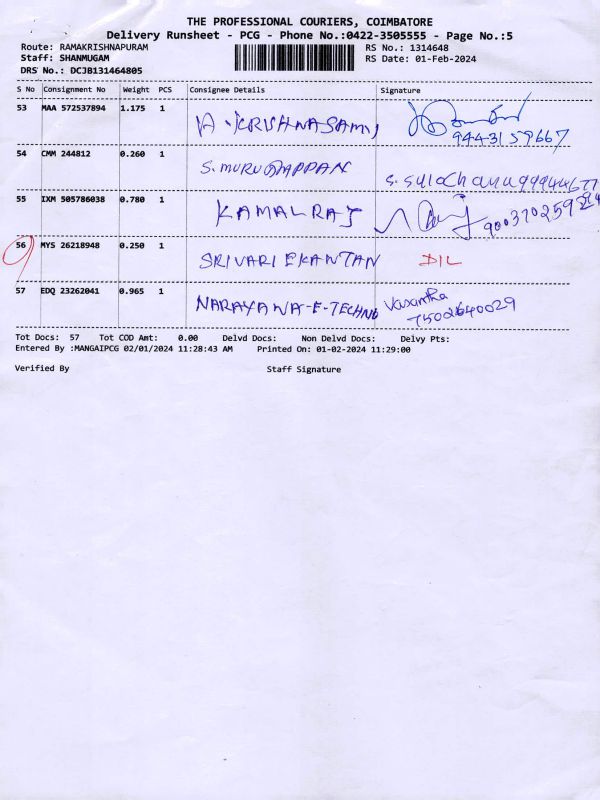 THE PROFESSIONAL COURIERS, COIMBATORE
Delivery Runsheet - PCG - Phone No.:0422-3505555 - Page No.:5
Route: RAMAKRISHNAPURAM RS No.: 1314648
Staff: SHANMUGAM RS Date: 01-Feb-2024
DRS No.: DCJB131464805
S No Consignment No Weight PCS Consignee Details Signature
53 MAA 572537894 1.175 1 A.KRISHNASAMI 9443159667
54 CMM 244812 0.260 1 S.MURUGAPPAN S. Sulochana
55 IXM 505786038 0.780 1 KAMALRAJ
56 MYS 26218948 0.250 1 SRIVARI EKANTAN DIL
57 EDQ 23262041 0.965 1 NARAYANA-E-TECHNO Vasantha
7502640029
Tot Docs: 57 Tot COD Amt: 0.00 Delvd Docs: Non Delvd Docs: Delvy Pts:
Entered By :MANGAIPCG 02/01/2024 11:28:43 AM Printed On: 01-02-2024 11:29:00
Verified By Staff Signature